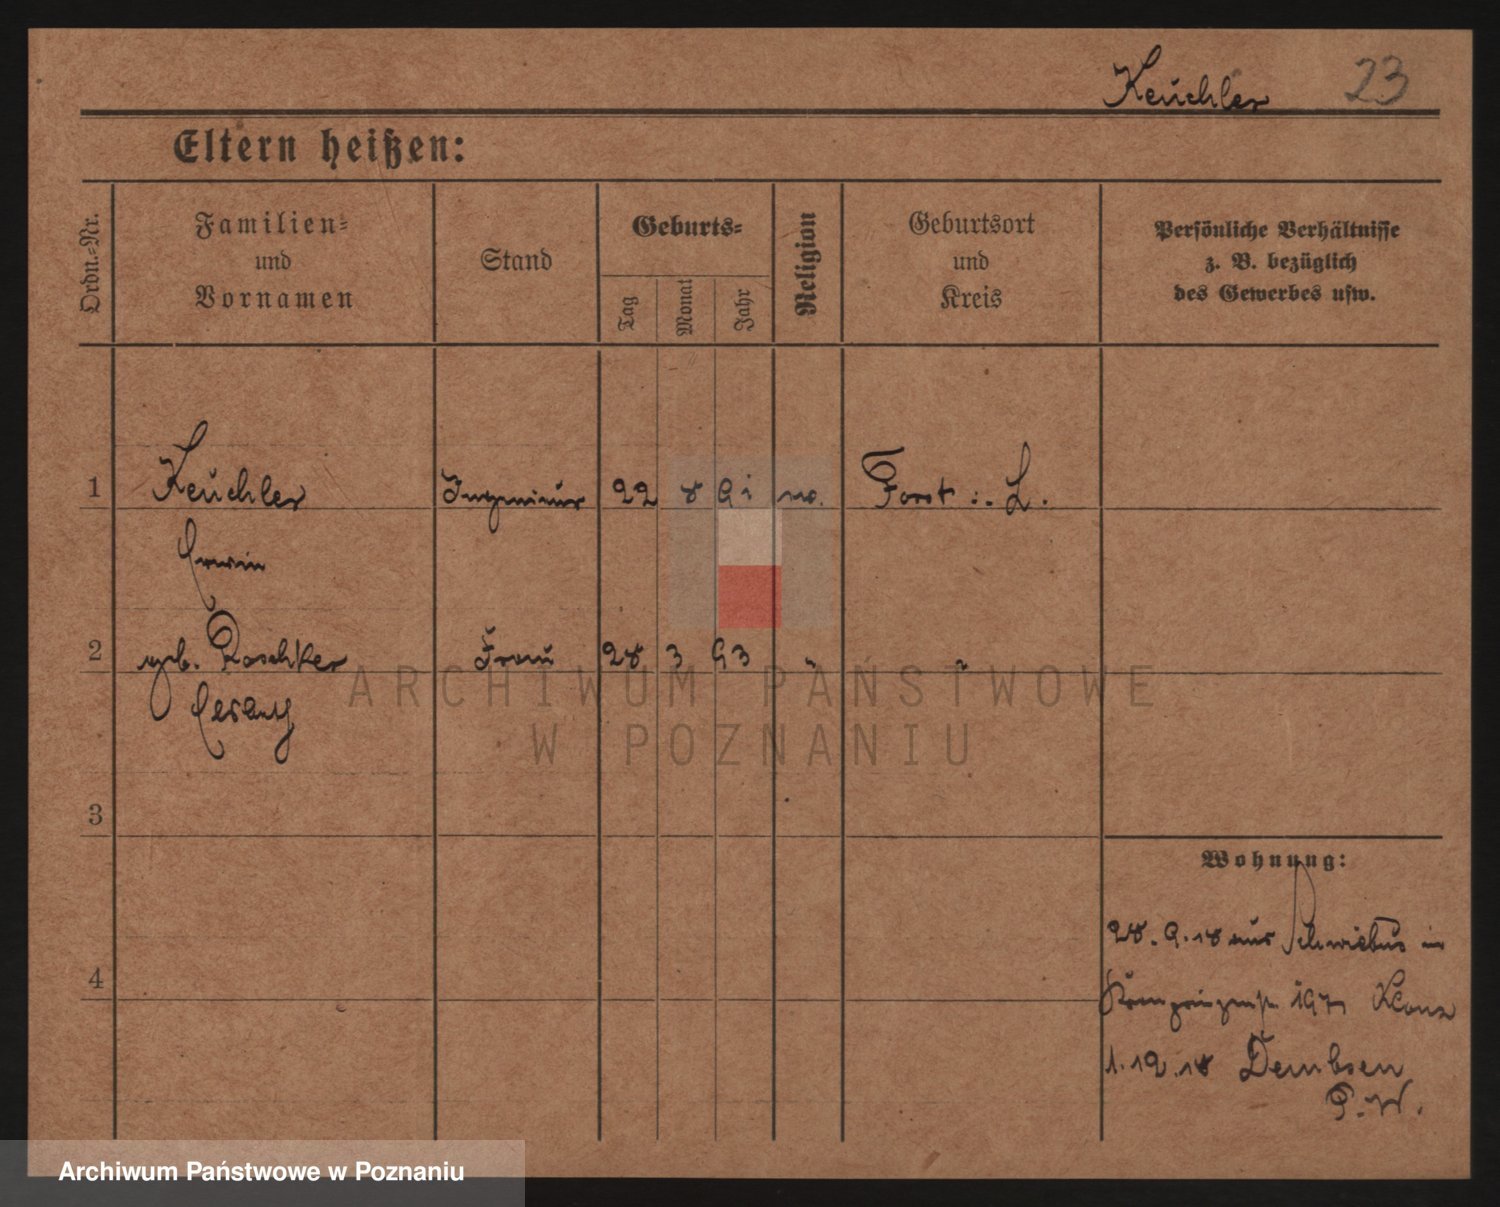 Keuchler 23
Eltern heißen:
Ordn.-Nr.
Familien-
und
Vornamen
Stand
Geburts-
Tag
Monat
Jahr
Religion
Geburtsort
und
Kreis
Persönliche Verhältnisse
z. B. bezüglich
des Gewerbes usw.
1 Keuchler Ingenieur 22 8 91 Forst i. L.
Erwin
2 geb. Roschker Frau 28 3 93 " "
ARCHIWUM PAŃSTWOWE
W POZNANIU
3
Wohnung:
28. 9. 18 aus Schwiebus in
4
Kronprinzenstr. 197
1. 12. 18 Dembsen
P. W.
Archiwum Państwowe w Poznaniu